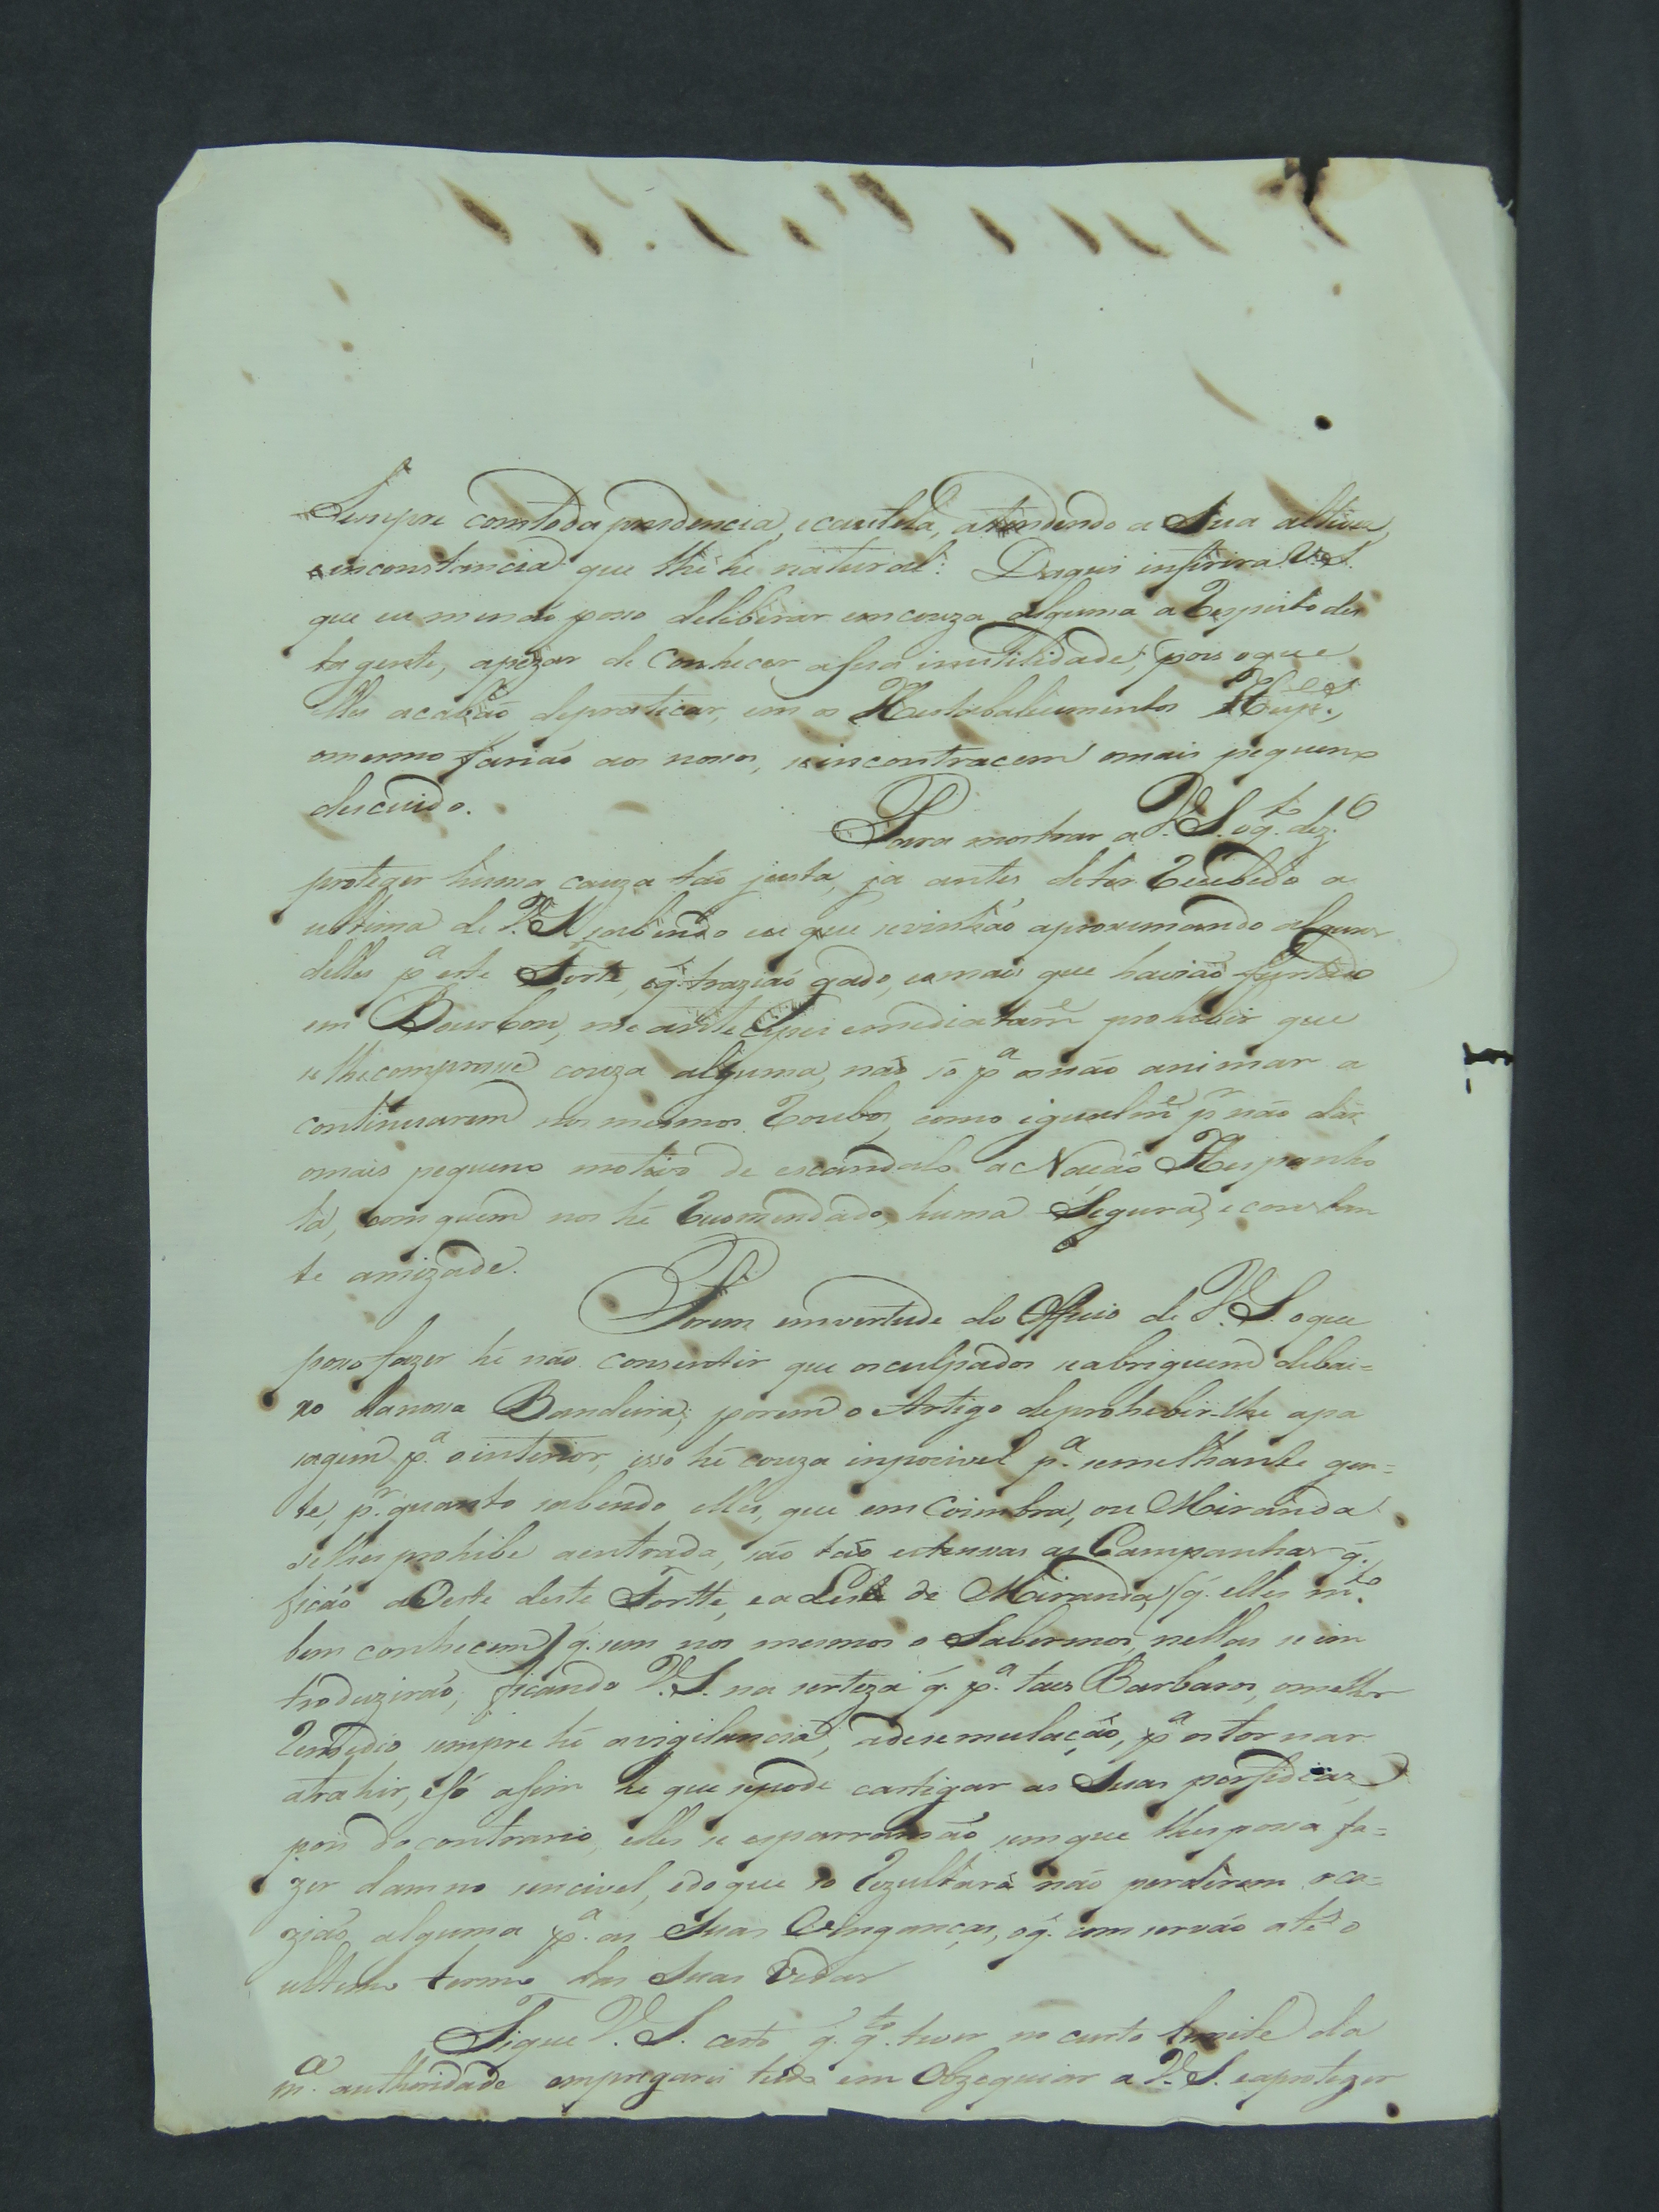 Sempre com toda prudencia, e cautela, atendendo a Sua altivez,
e inconstancia que lhe he natural: Daqui inferirá V.S.
que eu mindo posso deliberar em couza alguma a Respeito des
ta gente, apezar de conhecer a sua inutilidade; pois o que
elles acabão de praticar, em os Hestabalecimentos
o mesmo farião aos nossos, se incontracem o mais pequeno
descuido.
Para mostrar a V.S. o q.to dez.o
proteger huma cauza tão justa, já antes de ter Recebido a
ultima de V.S. sabendo eu que se vinhão aproximando alguns
delles p.a este Forte, e q. trazião gado, e o mais que havião furtado
em Bourbon, me antecipei emediatam.e prohebir que
se lhe comprasse couza alguma, não só p.a os não animar a
continuarem nos mesmos Roubos, como igualm.e p.r não dar
o mais pequeno motivo de escandalo a Nação Hespanho
la, com quem nos he Recomendado, huma Segura, e constan
te amizade.
Porem em vertude do Officio de V.S. o que
posso fazer hé não consentir que os culpados se abriguem debai=
xo da nossa Bandeira; porem o Artigo de prohebir-lhe a pa
sagem p.a o interior, isso hé couza inpocivel p.a semelhante gen=
te, p.r quanto sabendo elles, que em Coimbra, ou Miranda
se lhes prohibe a entrada, são tão extensas as Campanhas q.
ficão a Oeste deste Fortte, e a Leste de Miranda, (q. elles m.to
bem conhecem) q. sem nos mesmos o Sabermos, nellas se in
troduzirão; ficando V.S. na serteza q. p.a taes Barbaros, o melhor
Remedio sempre hé a vigilancia, a desemulação, p.a os tornar
atrahir, e só asim he que se pode castigar as Suas perfidias
pois do contrario, elles se esparramão sem que lhes possa fa=
zer damno sencivel, e do que só Rezultará não perderem oca=
zião alguma p.a as Suas Vinganças, o q. conservão até o
ultimo termo das Suas Vidas
Fique V.S. certo q. q.to tiver no curto limite da
m.a authoridade empregarei tudo em Obzequiar a V.S. e aproteger